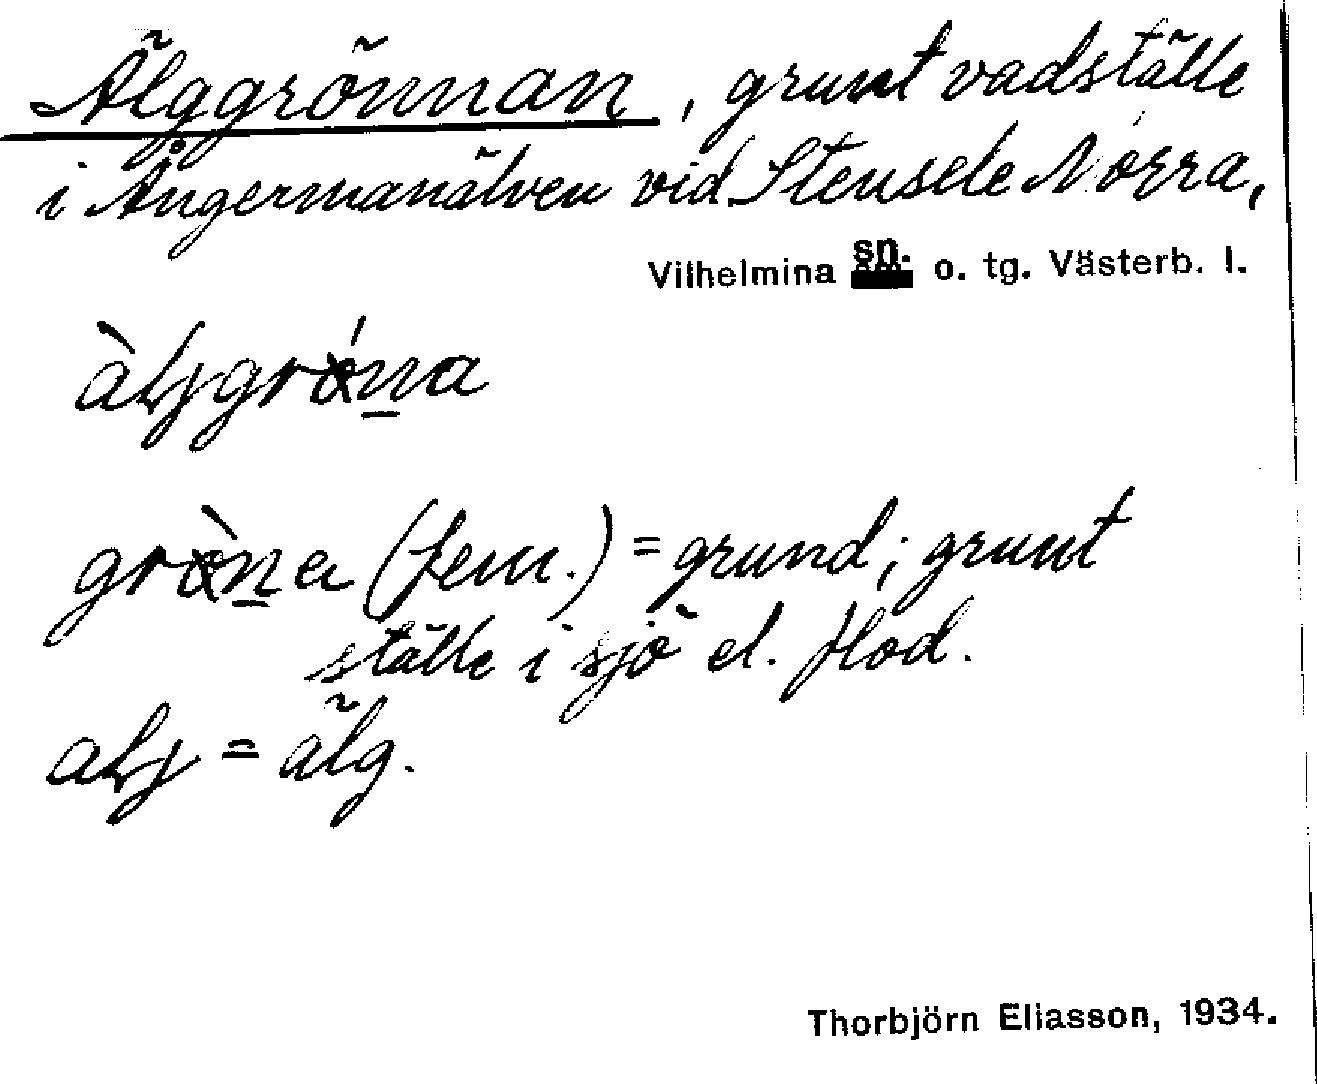 Älggrönnan, grunt vadställe
i Ångermanälven vid Stensele Norra,
Vilhelmina sn. o. tg. Västerb. l.
àljgrǿna
grö̀na (fem.) = grund; grunt
ställe i sjö el. flod.
alj = älg.
Thorbjörn Eliasson, 1934.